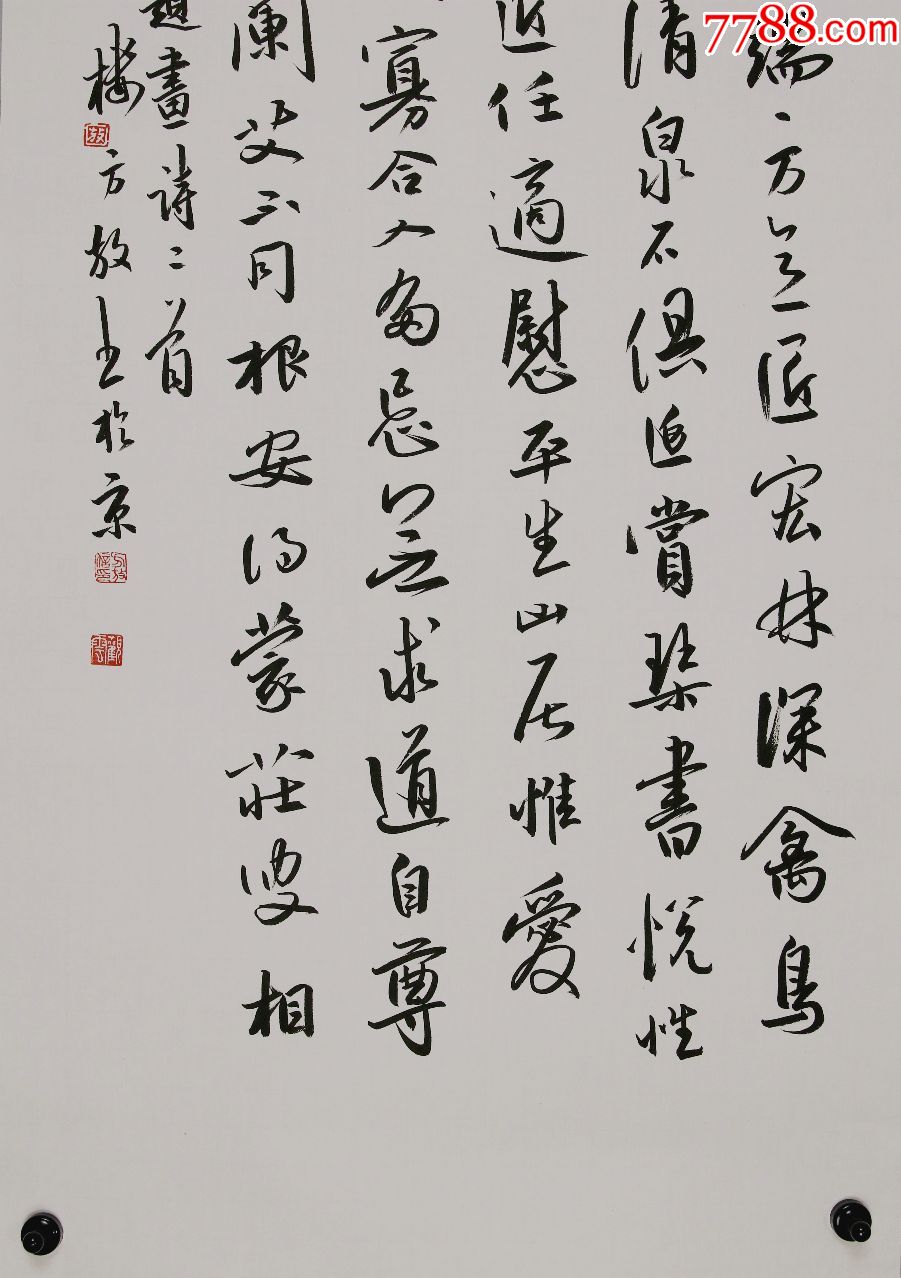 7788.com
端、方無匠宏林深禽鳥
清泉石俱延賞琴書悅性
近任適慰平生山居惟愛
寡合人多忌無求道自尊
蘭艾不同根安得蒙莊叟相
題畫詩二首
樓方放書於京